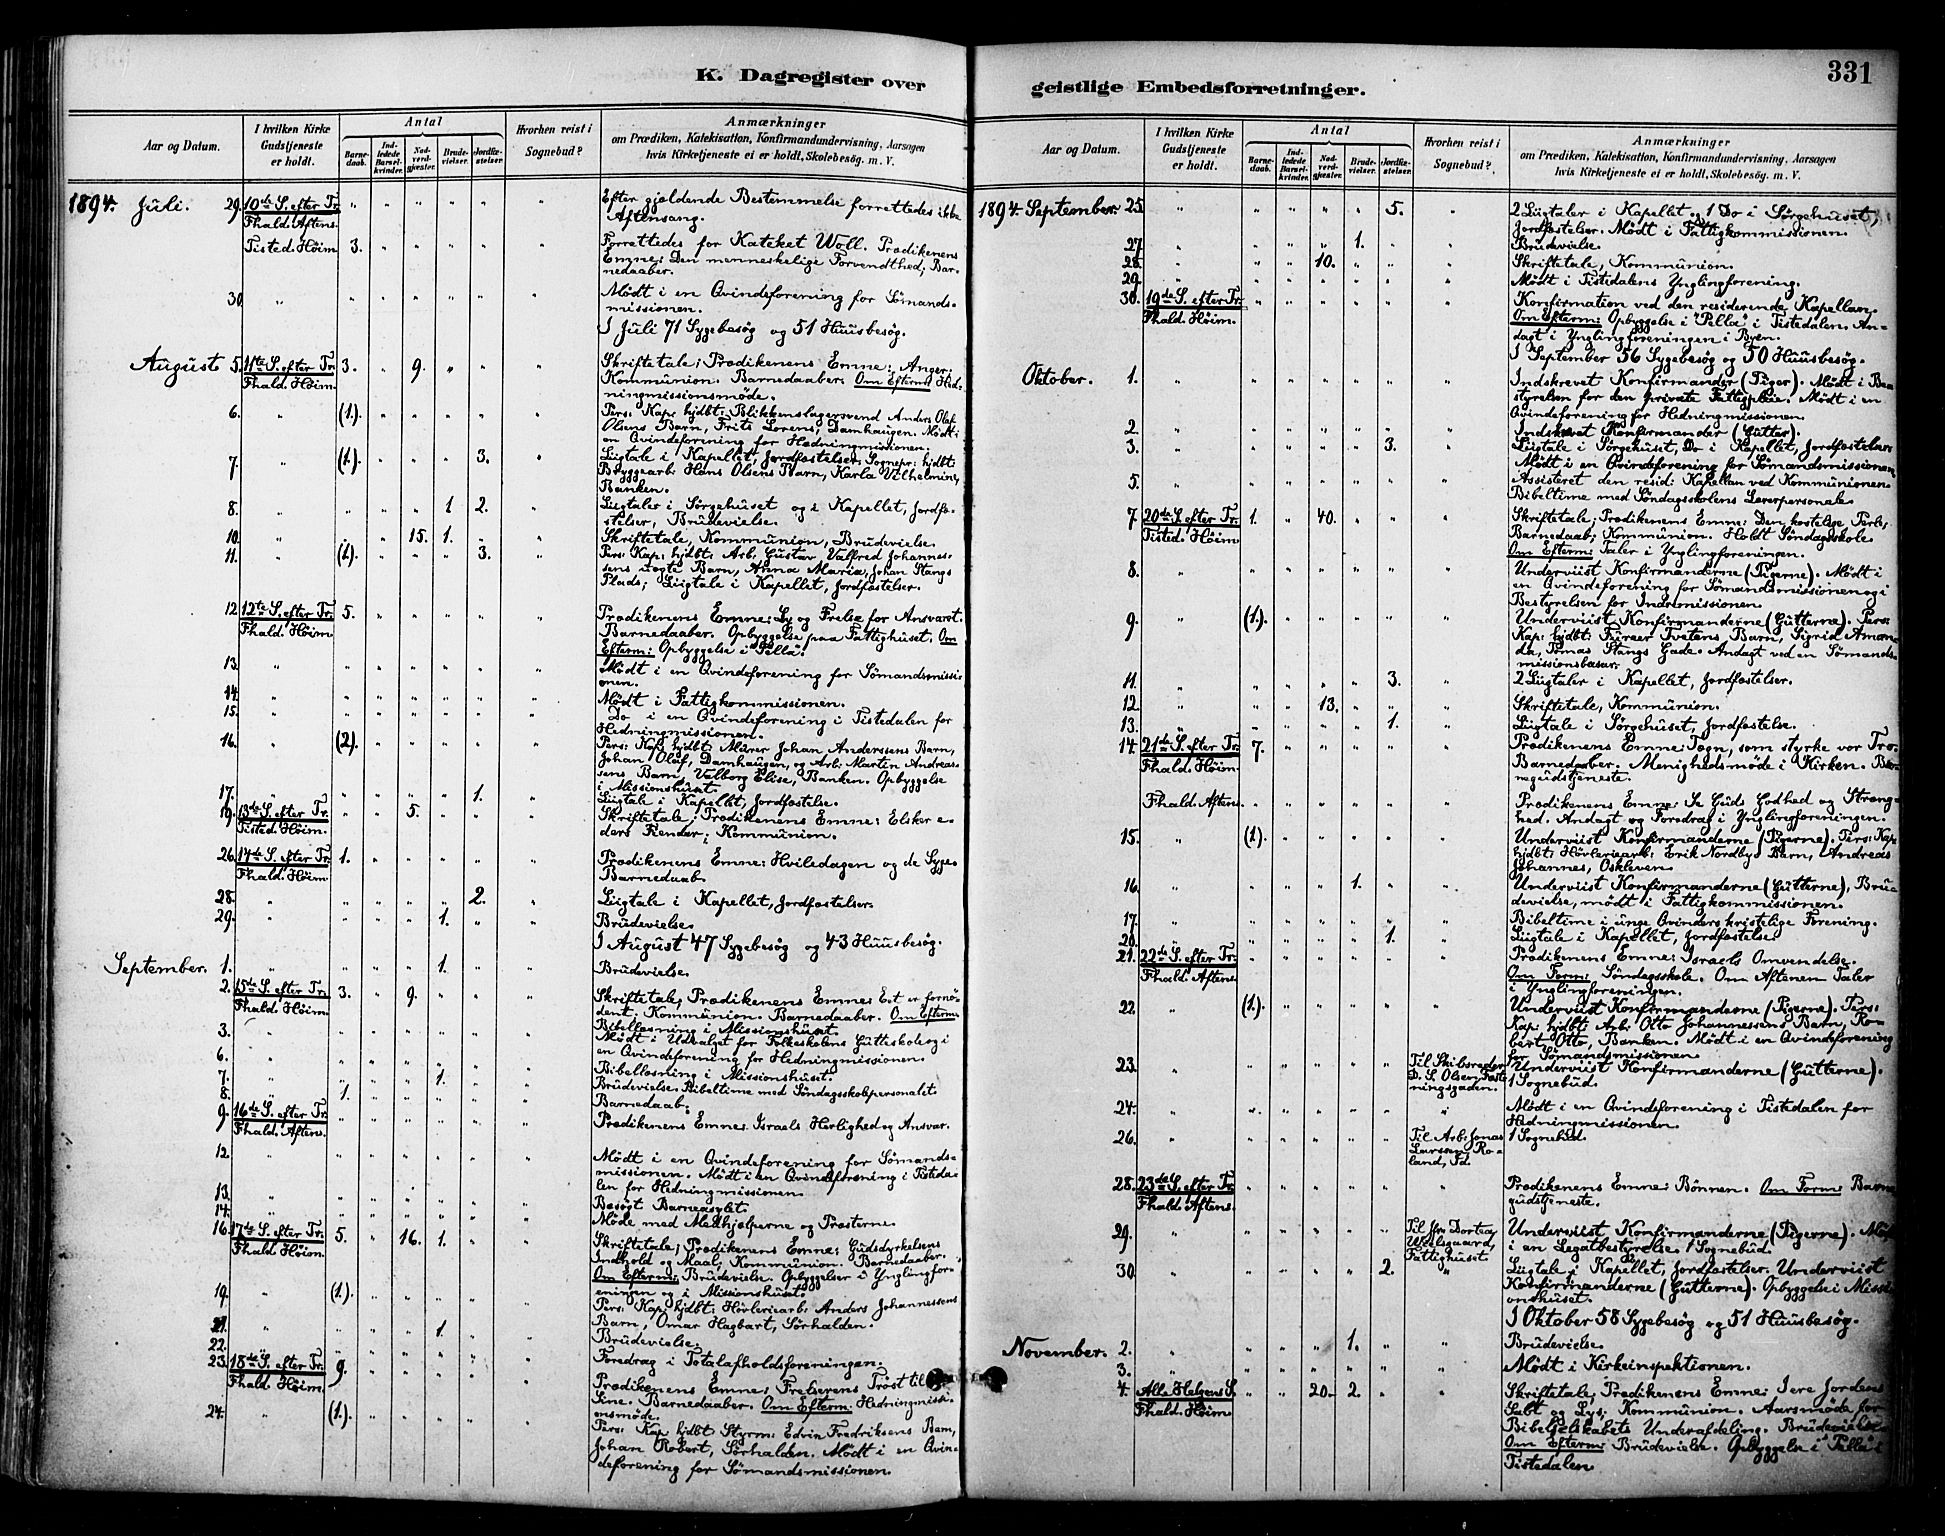 K. Dagregister over
geistlige Embedsforretninger.
331
Aar og Datum.
I hvilken Kirke
Gudstjeneste
er holdt.
Antal
Barne-
daab.
Ind-
ledede
Barsel-
kvinder.
Nad-
verd-
gjæster.
Brude-
vielser.
Jordfæ-
stelser.
Hvorhen reist i
Sognebud?
Anmærkninger
om Prædiken, Katekisation, Konfirmandundervisning, Aarsagen
hvis Kirketjeneste ei er holdt, Skolebesøg. m. V.
1894. Juli. 29. 10de S. efter Tr. Efter gjældende Bestemmelse forrettedes ikke
Fhald. Aftens. Aftensang.
Tisted. Høim. 3. Forrettedes for Kateket Woll. Prædikenens
Emne: Den menneskelige Forvendthed, Bar-
nedaaber.
30. Mødt i en Qvindeforening for Sømands-
missionen.
I Juli 71 Sygebesøg og 51 Huusbesøg.
August 5. 11te S. efter Tr. 3. 9. Skriftetale; Prædikenens Emne: Anger;
Fhald. Høim. Kommunion. Barnedaaber. Om Efterm: Hed-
ningmissionsmøde.
6. (1.) Pers: Kap: hjdbt: Blikkenslagersvend Anders Olaf
Olsens Barn, Frits Lorens, Damhaugen. Mødt i
en Qvindeforening for Hedningmissionen.
7. (1.) 3. Liigtale i Kapellet, Jordfæstelser. Sognepr: hjdbt:
Bryggearb: Hans Olsens Barn, Karla Vilhelmine,
Banken.
8. 1 2. Liigtaler i Sørgehuset og i Kapellet, Jordfæ-
stelser, Brudevielse.
10. 15. 1. Skriftetale, Kommunion, Brudevielse.
11. (1.) 3. Pers: Kap: hjdbt: Arb: Gustav Valfred Johannes-
sens uægte Barn, Anna Maria, Johan Stangs
Plads; Liigtale i Kapellet, Jordfæstelser.
12. 12te S. efter Tr. 5. Prædikenens Emne: Ly og Frelse for Ansvaret.
Fhald. Høim. Barnedaaber. Opbyggelse paa Fattighuset. Om
Efterm: Opbyggelse i "Pella".
13. Mødt i en Qvindeforening for Sømandsmissi-
onen.
14. Mødt i Fattigkommissionen.
15. Do i en Qvindeforening i Tistedalen for
Hedningmissionen.
16. (2.) Pers: Kap: hjdbt: Murer Johan Anderssens Barn,
Johan Oluf, Damhaugen, og Arb: Martin Andreas-
sens Barn, Valborg Elise, Banken. Opbyggelse
i Missionshuset.
17. 1. Liigtale i Kapellet, Jordfæstelse.
19. 13de S. efter Tr. 5. Skriftetale; Prædikenens Emne: Elsker e-
Tisted. Høim. ders Fiender; Kommunion.
26. 14de S. efter Tr. 1. Prædikenens Emne: Hviledagen og de Syge.
Fhald. Høim. Barnedaab.
28. 2. Liigtale i Kapellet, Jordfæstelser.
29. 1. Brudevielse.
I August 47 Sygebesøg og 43 Huusbesøg.
September. 1. 1. Brudevielse.
2. 15de S. efter Tr. 3. 9. Skriftetale; Prædikenens Emne: Eet er fornø-
Fhald. Høim. dent; Kommunion. Barnedaaber. Om Efterm:
Bibellæsning i Missionshuset.
3. Mødt i Udvalget for Folkeskolens Gutteskole og i
en Qvindeforening for Hedningmissionen.
6. Bibellæsning i Missionshuset.
7. 1. Brudevielse. Bibeltime med Søndagsskolepersonalet.
8. 1. Barnedaab.
9. 16de S. efter Tr. Prædikenens Emne: Israels Herlighed og Ansvar.
Fhald. Aftens.
12. Mødt i en Qvindeforening for Sømands-
missionen. Mødt i en Qvindeforening i Tisteda-
len for Hedningmissionen.
13. Besøgt Barneasylet.
14. Møde med Medhjelperne og Præsterne.
16. 17de S. efter Tr. 5. 16. 1. Skriftetale; Prædikenens Emne: Gudsdyrkelsens
Fhald. Høim. Indhold og Maal; Kommunion. Barnedaaber.
Om Efterm: Brudevielse. Opbyggelser i Ynglingfor-
eningen og i Missionshuset.
19. (1.) Pers: Kap: hjdbt: Høvleriearb: Anders Johannessens
Barn, Omar Hagbart, Sørhalden.
21. 1. Brudevielse.
22. Foredrag i Totalafholdsforeningen.
23. 18de S. efter Tr. 9. Prædikenens Emne: Frelserens Trøst til
Fhald. Høim. Sine. Barnedaaber. Om Efterm: Hedningmissi-
onsmøde.
24. (1.) Pers: Kap: hjdbt: Styrm: Edvin Fredriksens Barn,
Johan Robert, Sørhalden. Mødt i en Qvin-
deforening for Sømandsmissionen.
Aar og Datum.
I hvilken Kirke
Gudstjeneste
er holdt.
Antal
Barne-
daab.
Ind-
ledede
Barsel-
kvinder.
Nad-
verd-
gjæster.
Brude-
vielser.
Jordfæ-
stelser.
Hvorhen reist i
Sognebud?
Anmærkninger
om Prædiken, Katekisation, Konfirmandundervisning, Aarsagen
hvis Kirketjeneste ei er holdt, Skolebesøg. m. V.
1894. September. 25. 5. 2 Liigtaler i Kapellet og 1 Do i Sørgehuset,
Jordfæstelser. Mødt i Fattigkommissionen.
27. 1. Brudevielse.
28. 10. Skriftetale, Kommunion.
29. Mødt i Tistedalens Ynglingforening.
30. 19de S. efter Tr. Konfirmation ved den residerende Kapellan.
Fhald. Høim. Om Efterm: Opbyggelse i "Pella" i Tistedalen. An-
dagt i Ynglingforeningen i Byen.
I September 56 Sygebesøg og 50 Huusbesøg.
Oktober. 1. Indskrevet Konfirmander (Piger). Mødt i Be-
styrelsen for den private Fattigpleie. Mødt i en
Qvindeforening for Hedningmissionen.
2. Indskrevet Konfirmander (Gutter).
3. 3. Liigtale i Sørgehuset, Do i Kapellet, Jordfæstelser.
Mødt i en Qvindeforening for Sømandsmissionen.
5. Assisteret den resid: Kapellan ved Kommunionen.
Bibeltime med Søndagsskolens Lærerpersonale.
7. 20de S. efter Tr. 1. 40. Skriftetale; Prædikenens Emne: Den kostelige Perle;
Tisted. Høim. Barnedaab; Kommunion. Holdt Søndagsskole.
Om Efterm: Taler i Ynglingforeningen.
8. Underviist Konfirmanderne (Pigerne). Mødt i
en Qvindeforening for Sømandsmissionen og i
Bestyrelsen for Indremissionen.
9. (1.) Underviist Konfirmanderne (Gutterne). Pers:
Kap: hjdbt: Furer Tvetens Barn, Sigrid Aman-
da, Tomas Stangs Gade. Andagt ved en Sømands-
missionsbasar.
11. 3. 2 Liigtaler i Kapellet, Jordfæstelser.
12. 13. Skriftetale, Kommunion.
13. 1. Liigtale i Sørgehuset, Jordfæstelse.
14. 21de S. efter Tr. 7. Prædikenens Emne: Tegn, som styrke vor Tro.
Fhald. Høim. Barnedaaber. Menighedsmøde i Kirken. Bør-
negudstjeneste.
Fhald. Aftens. Prædikenens Emne: Se Guds Godhed og Streng-
hed. Andagt og Foredrag i Ynglingforeningen.
15. (1.) Underviist Konfirmanderne (Pigerne). Pers: Kap:
hjdbt: Høvleriearb: Erik Nordbys Barn, Andreas
Johannes, Oskleven.
16. 1. Underviist Konfirmanderne (Gutterne), Bru-
devielse, mødt i Fattigkommissionen.
17. Bibeltime i unge Qvinders kristelige Forening.
20. 1. Liigtale i Kapellet, Jordfæstelse.
21. 22de S. efter Tr. Prædikenens Emne: Israels Omvendelse.
Fhald. Aftens. Om Form: Søndagsskole. Om Aftenen Taler
i Ynglingforeningen.
22. (1.) Underviist Konfirmanderne (Pigerne). Pers:
Kap: hjdbt: Arb: Otto Johannessens Barn, Ro-
bert Otto, Banken. Mødt i en Qvindeforening
for Sømandsmissionen.
23. Til Skibsreder Underviist Konfirmanderne (Gutterne).
D. S. Olsen, Fæst- 1 Sognebud.
ningsgaden.
24. Mødt i en Qvindeforening i Tistedalen for
Hedningmissionen.
26. Til Arb: Jonas 1 Sognebud.
Larssen Ro-
land, Id.
28. 23de S. efter Tr. Prædikenens Emne: Bønnen. Om Form: Børne-
Fhald. Aftens. gudstjeneste.
29. Til Dortea Underviist Konfirmanderne (Pigerne). Mødt
i en Legatbestyrelse. 1 Sognebud.
Fattighuset
30. 2. Liigtale i Kapellet, Jordfæstelser. Underviist
Konfirmanderne (Gutterne). Opbyggelse i Missi-
onshuset.
I Oktober 58 Sygebesøg og 51 Huusbesøg.
November. 2. 1. Brudevielse.
3. Mødt i Kirkeinspektionen.
4. Alle Helgens S. 20. 2. Skriftetale; Prædikenens Emne: I ere Jordens
Fhald. Høim. Salt og Lys; Kommunion. Aarsmøde for
Bibelselskabets Underafdeling. Brudevielse.
Om Efterm: Brudevielse. Opbyggelse i "Pella" i
Tistedalen.